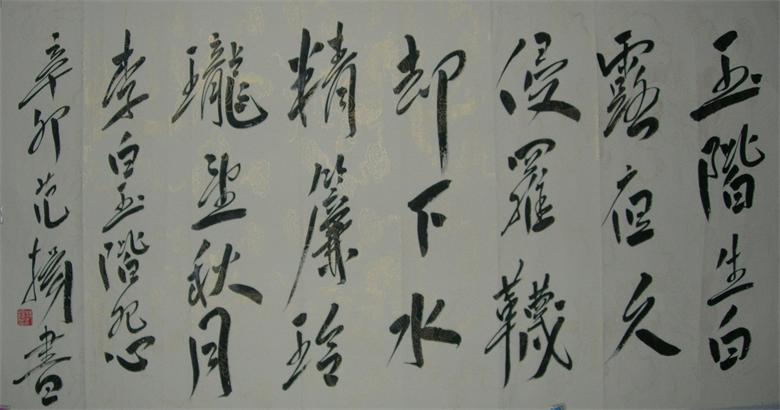 玉階生白
露夜久
侵羅襪
却下水
精簾玲
瓏望秋月
李白玉階怨
辛卯范撝書